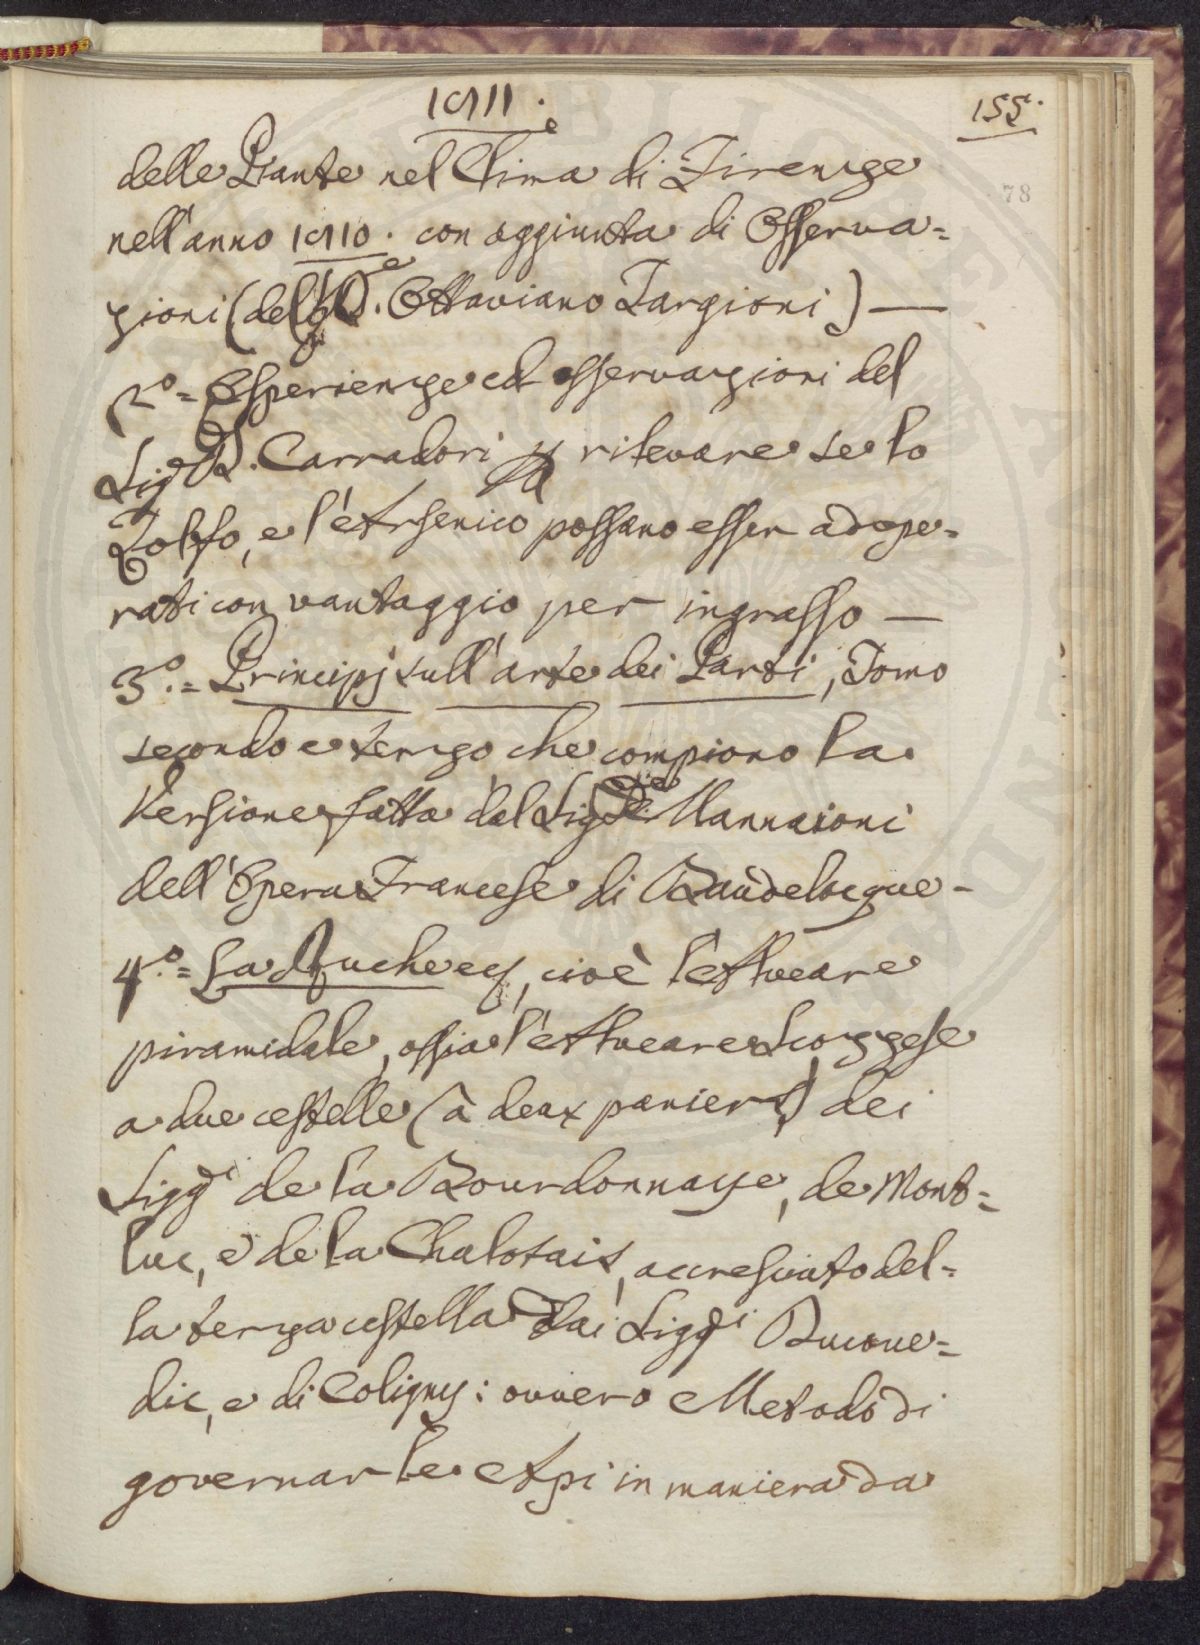 1811.
155.
78
delle Piante nel Clima di Firenze
nell'anno 1810. con aggiunta di Osserva=
zioni (del Sig.e D. Ottaviano Targioni) —
2.o = Esperienze ed osservazioni del
Sig.e D. Carradori p rilevare se lo
Zolfo, e l'Arsenico possano esser adope=
rati con vantaggio per ingrasso —
3.o = Principj sull'arte dei Parti, Tomo
secondo e terzo che compiono la
Versione fatta dal Sig.e Mannaioni
dell'Opera Francese di Baudelocque -
4.o = La Ruche ec, cioè l'Alveare
piramidale, ossia l'Alveare Scozzese
a due cestelle (à deux paniers) dei
Sigg.i de la Bourdonnaye, de Mont=
luc, e de la Chalotais, accresciuto del=
la terza cestella dai Sigg.i Ducoue=
dic, e di Coligny: ovvero Metodo di
governar le Api in maniera da